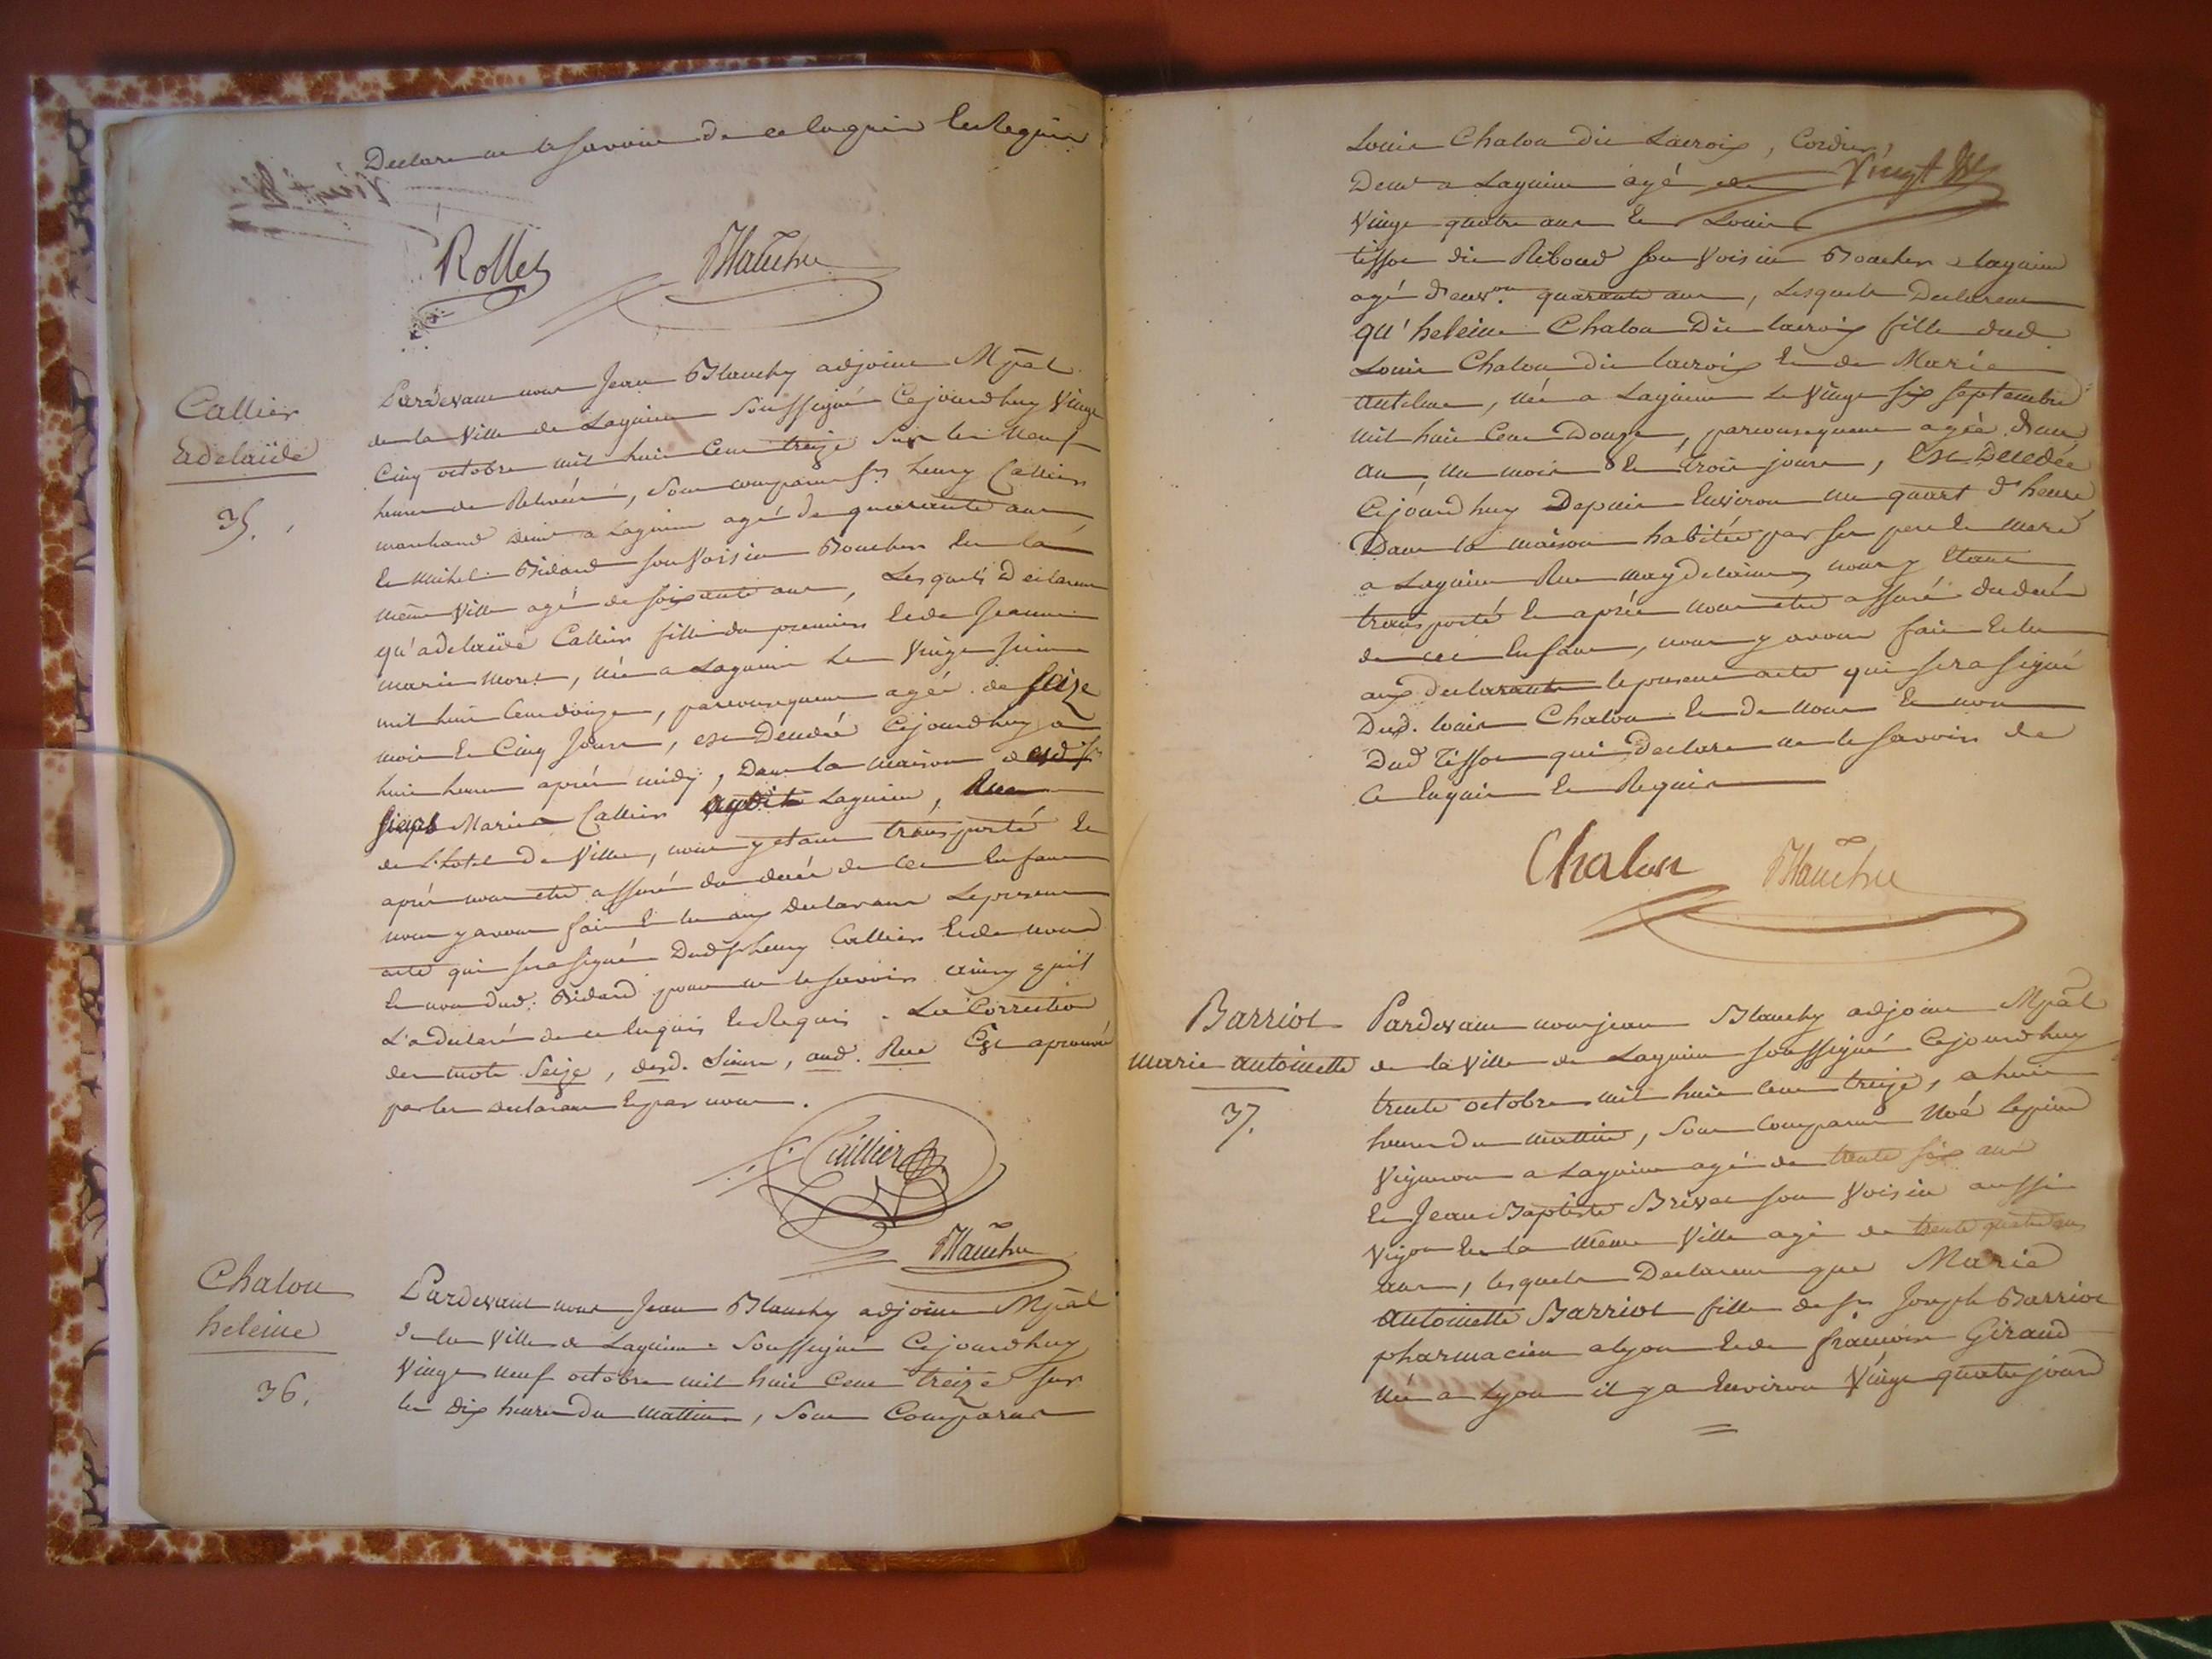 Declare ne le savoir de ce enquis et requis
Rollet Blanchy
Callier
adelaïde
35.
Pardevant nous Jean Blanchy adjoint Mpâl
de la Ville de Lagnieu Soussigné Cejourdhuy Vingt
Cinq octobre mil huit Cent treize Sur les Neuf
heures de Relevée, sont comparus Sr henry Callier
marchand demt a Lagnieu agé de quarante ans
Et Michel Bidard son Voisin Boucher En la
même Ville agé de soixante ans, Lesquels Declarent
qu'adelaïde Callier fille du premier Et de Jeanne
marie Moret, née a Lagnieu Le Vingt juin
mil huit Cent douze, parconsequent agée de seize
mois Et Cinq Jours, est Decedée Cejourdhuy a
huit heures après midy, Dans la maison desd.
sieurs Marie Callier audit Lagnieu, Rue
de L'hotel De Ville, nous y etant transporté Et
après nous etre assuré du decés de cet Enfant
nous y avons fait Et lu aux declarans Le present
acte qui sera signé Dud Sr henry Callier Et de nous
Et non dud. Bidard pour ne le savoir ainsy quil
L'a declaré de ce Enquis Et Requis. La Correction
des mots Seize, desd. Sieurs, aud. Rue Est aprouvée
par les declarans Et par nous.
Callier
Blanchy
Chalou
heleine
36.
Pardevant nous Jean Blanchy adjoint Mpâl
de la Ville de Lagnieu Soussigné Cejourdhuy
Vingt neuf octobre mil huit Cent treize sur
les dix heures Du Mattin, Sont Comparus
Louis Chalou dit Lacroix, Cordier,
Vingt
Demt a Lagnieu agé de
Vingt quatre ans Et Louis
tissot dit Riboud son Voisin Boucher a Lagnieu
agé d'envon. quarante ans, Lesquels Declarent
qu'heleine Chalou Dit lacroix fille dud.
Louis Chalou dit lacroix Et de Marie
Antelme, née a Lagnieu Le Vingt six septembre
mil huit Cent Douze, parconsequent agée d'un
an, un mois Et trois jours, Est Decedée
Cejourdhuy Depuis Environ un quart d'heure
Dans la maison habitée par ses pere Et mere
a Lagnieu Rue Magdelaine, nous y Etant
transporté Et après nous etre assuré du decés
de cet Enfant, nous y avons fait Et lu
aux declarants le present acte qui sera signé
Dud. Louis Chalou Et De nous Et non
Dud Tissot qui Declare ne le savoir de
Ce Enquis Et Requis
Chalou Blanchy
Barriot
marie antoinette
37.
Pardevant nous jean Blanchy adjoint Mpâl
de la Ville de Lagnieu soussigné Cejourdhuy
trente octobre mil huit Cent treize, a huit
heures du mattin, sont Comparus Noé
Vigneron a Lagnieu agé de trente six ans
Et Jean Baptiste Brivet son Voisin aussi
Vigon En la même Ville agé de trente quatre ans
ans, lesquels Declarent que Marie
Antoinette Barriot fille de Sr Joseph Barriot
pharmacien a Lyon Et de françoise Giraud
née a Lyon il y a Environ Vingt quatre jours